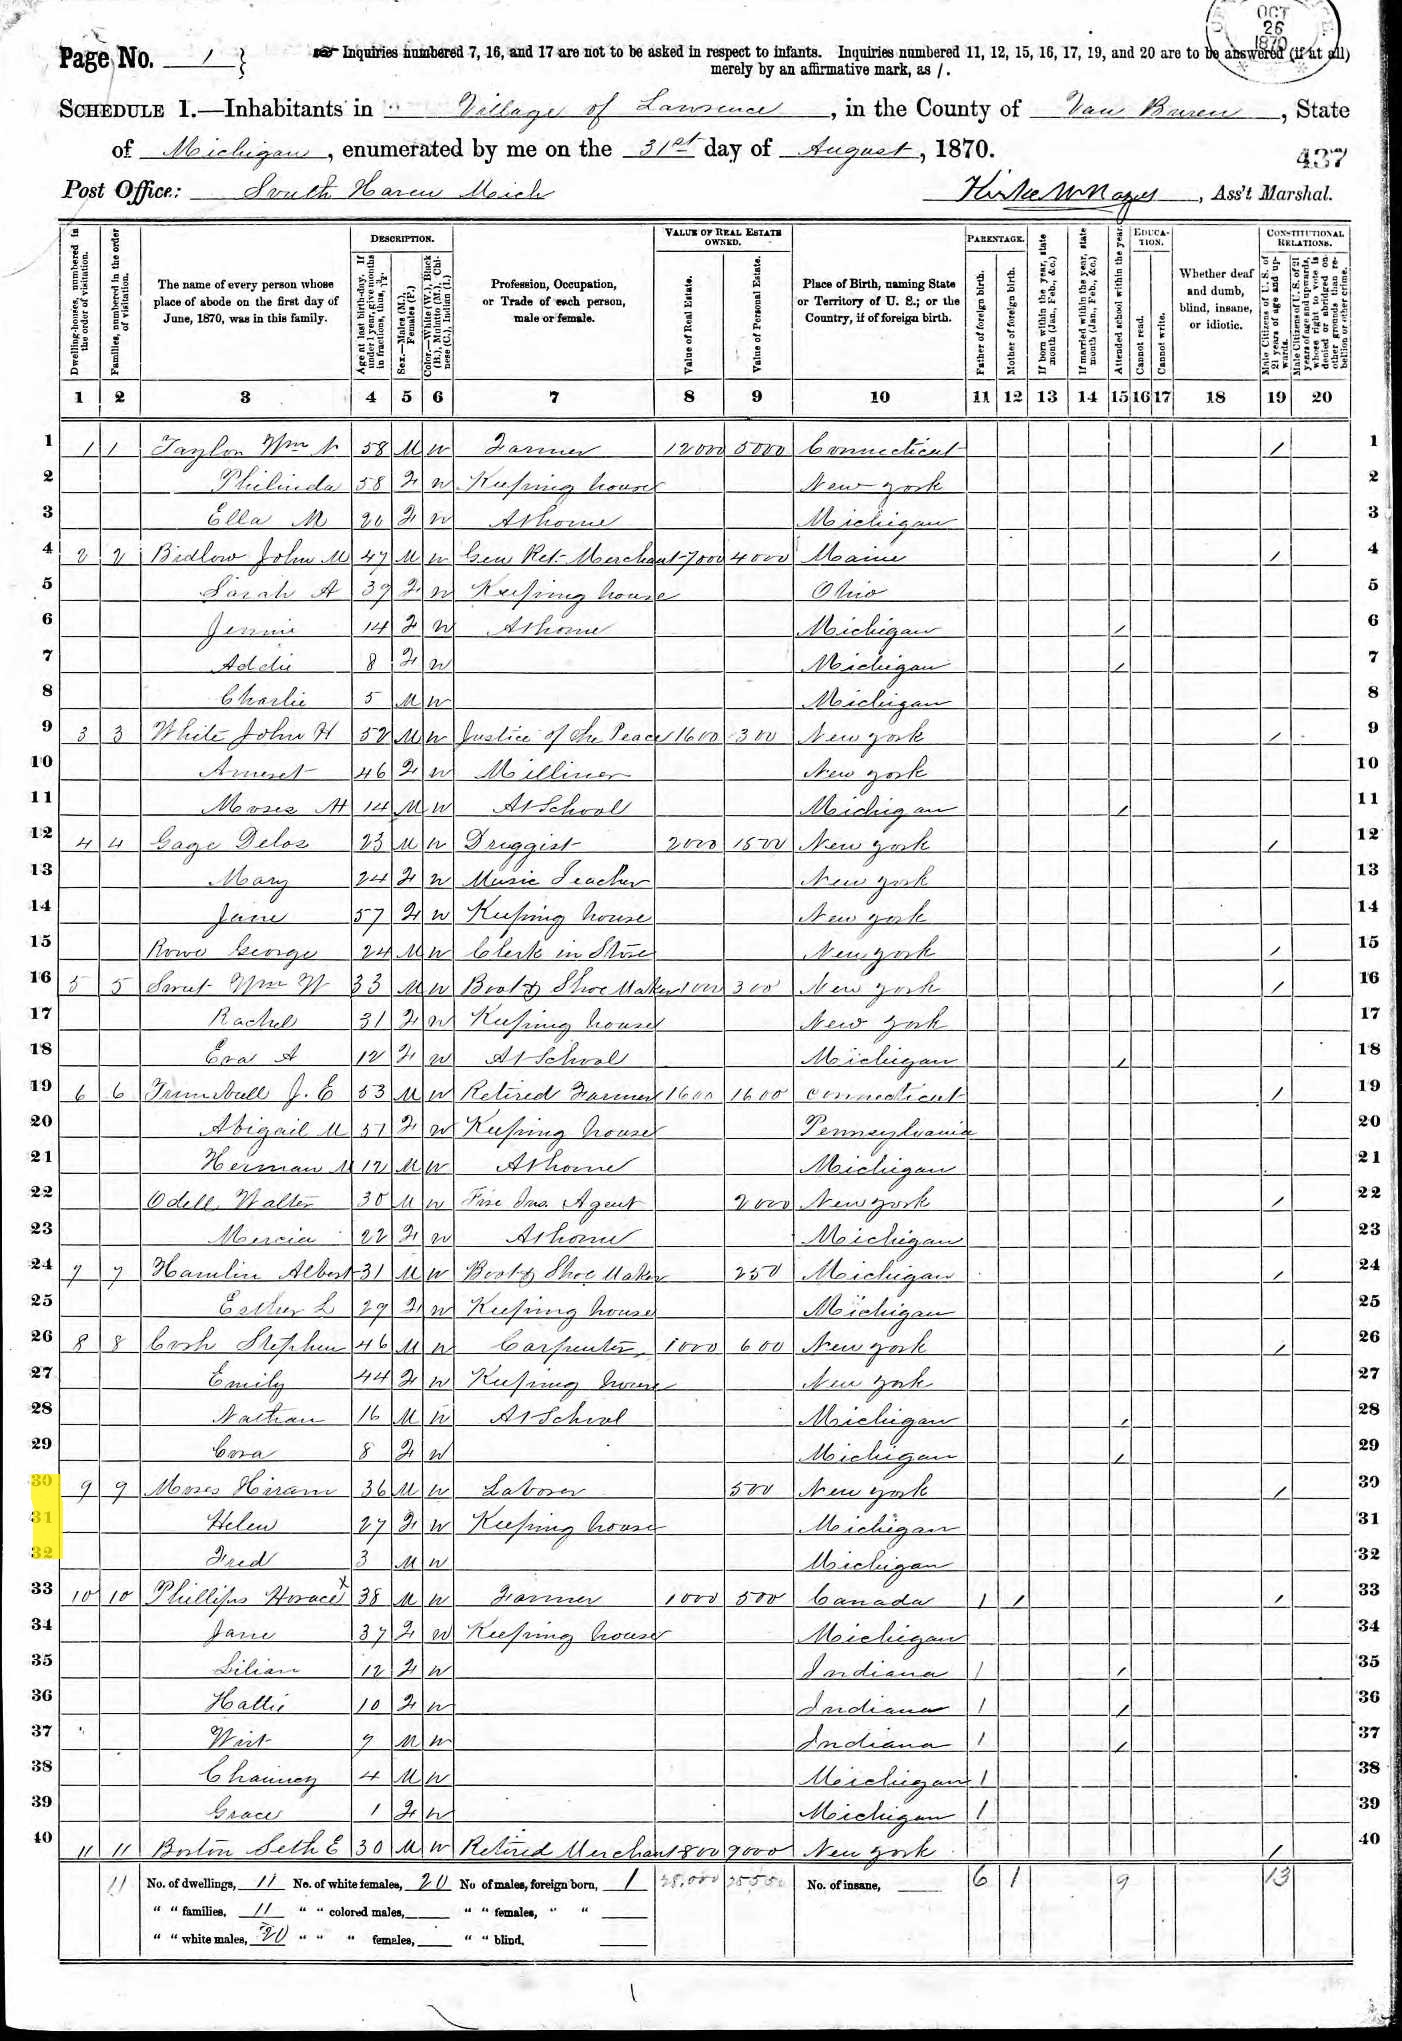 OCT
26
1870
Page No. 1 }
☞ Inquiries numbered 7, 16, and 17 are not to be asked in respect to infants. Inquiries numbered 11, 12, 15, 16, 17, 19, and 20 are to be answered (if at all)
merely by an affirmative mark, as /.
SCHEDULE 1.—Inhabitants in Village of Lawrence, in the County of Van Buren, State
of Michigan, enumerated by me on the 31st day of August, 1870.
437
Post Office: South Haven Mich
Kirke W Noyes, Ass't Marshal.
Dwelling-houses, numbered in the order of visitation.
Families, numbered in the order of visitation.
The name of every person whose place of abode on the first day of June, 1870, was in this family.
DESCRIPTION.
Age at last birth-day. If under 1 year, give months in fractions, thus, 3/12.
Sex.—Males (M.), Females (F.)
Color.—White (W.), Black (B.), Mulatto (M.), Chinese (C.), Indian (I.)
Profession, Occupation, or Trade of each person, male or female.
VALUE OF REAL ESTATE OWNED.
Value of Real Estate.
Value of Personal Estate.
Place of Birth, naming State or Territory of U. S.; or the Country, if of foreign birth.
PARENTAGE.
Father of foreign birth.
Mother of foreign birth.
If born within the year, state month (Jan., Feb., &c.)
If married within the year, state month (Jan., Feb., &c.)
Attended school within the year.
EDUCATION.
Cannot read.
Cannot write.
Whether deaf and dumb, blind, insane, or idiotic.
CONSTITUTIONAL RELATIONS.
Male Citizens of U. S. of 21 years of age and upwards.
Male Citizens of U. S. of 21 years of age and upwards, whose right to vote is denied or abridged on other grounds than rebellion or other crime.
1 2 3 4 5 6 7 8 9 10 11 12 13 14 15 16 17 18 19 20
1 1 1 Taylor Wm 58 M W Farmer 12000 5000 Connecticut / 1
2 Philinda 58 F W Keeping house New york 2
3 Ella M 20 F W At home Michigan 3
4 2 2 Bidlow John M 47 M W Gen Ret. Merchant 7000 4000 Maine / 4
5 Sarah A 39 F W Keeping house Ohio 5
6 Jennie 14 F W At home Michigan / 6
7 Addie 8 F W Michigan / 7
8 Charlie 5 M W Michigan 8
9 3 3 White John H 52 M W Justice of the Peace 1600 300 New york / 9
10 46 F W Milliner New york 10
11 Moses H 14 M W At School Michigan / 11
12 4 4 Gage Delos 23 M W Druggist 2000 1500 New york / 12
13 Mary 24 F W Music Teacher New york 13
14 Jane 57 F W Keeping house New york 14
15 Rowe George 24 M W Clerk in Store New york / 15
16 5 5 Wm W 33 M W Boot & Shoe Maker 1000 300 New york / 16
17 Rachel 31 F W Keeping house New york 17
18 Eva A 12 F W At School Michigan / 18
19 6 6 Trumbull J. E 53 M W Retired Farmer 1600 1600 Connecticut / 19
20 Abigail M 51 F W Keeping house Pennsylvania 20
21 Herman M 12 M W At home Michigan 21
22 Odell Walter 30 M W Fire Ins. Agent 2000 New york / 22
23 Mercia 22 F W At home Michigan 23
24 7 7 Hamlin Albert 31 M W Boot & Shoe Maker 250 Michigan / 24
25 Esther L 29 F W Keeping house Michigan 25
26 8 8 Cash Stephen 46 M W Carpenter 1000 600 New york / 26
27 Emily 44 F W Keeping house New york 27
28 Nathan 16 M W At School Michigan / 28
29 Cora 8 F W Michigan / 29
30 9 9 Moses Hiram 36 M W Laborer 500 New york / 30
31 Helen 27 F W Keeping house Michigan 31
32 Fred 3 M W Michigan 32
33 10 10 Phillips Horace x 38 M W Farmer 1000 500 Canada / / / 33
34 Jane 37 F W Keeping house Michigan 34
35 Lilian 12 F W Indiana / / 35
36 Hattie 10 F W Indiana / / 36
37 Wirt 9 M W Indiana / / 37
38 Chauncy 4 M W Michigan / 38
39 Grace 1 F W Michigan / 39
40 11 11 Boston Seth E 30 M W Retired Merchant 1800 9000 New york / 40
11 No. of dwellings, 11 No. of white females, 20 No of males, foreign born, 1 28,000 25550 No. of insane, 6 1 9 13
" " families, 11 " " colored males, " " females, " "
" " white males, 20 " " " females, " " blind.